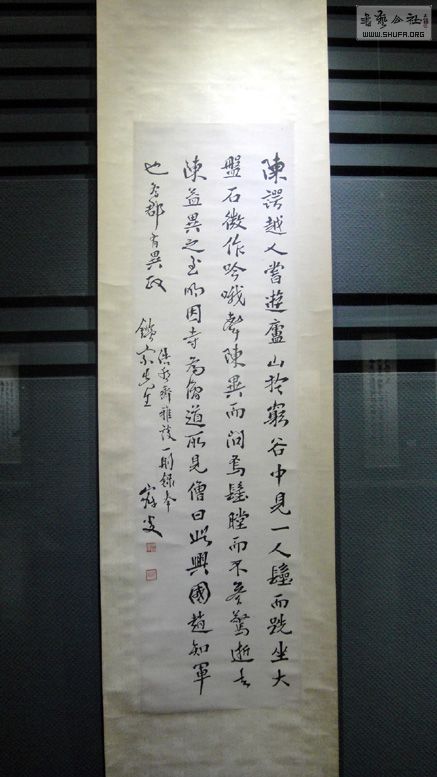 書藝公社
WWW.SHUFA.ORG
陳諤越人嘗遊廬山於窮谷中見一人而跣坐大
盤石微作吟哦聲陳異而問焉瞠而不答驚逝去
陳益異之至明因寺為僧道所見僧曰此興國趙知軍
也為郡有異政
齋雅談一則錄奉
先生
寐叟